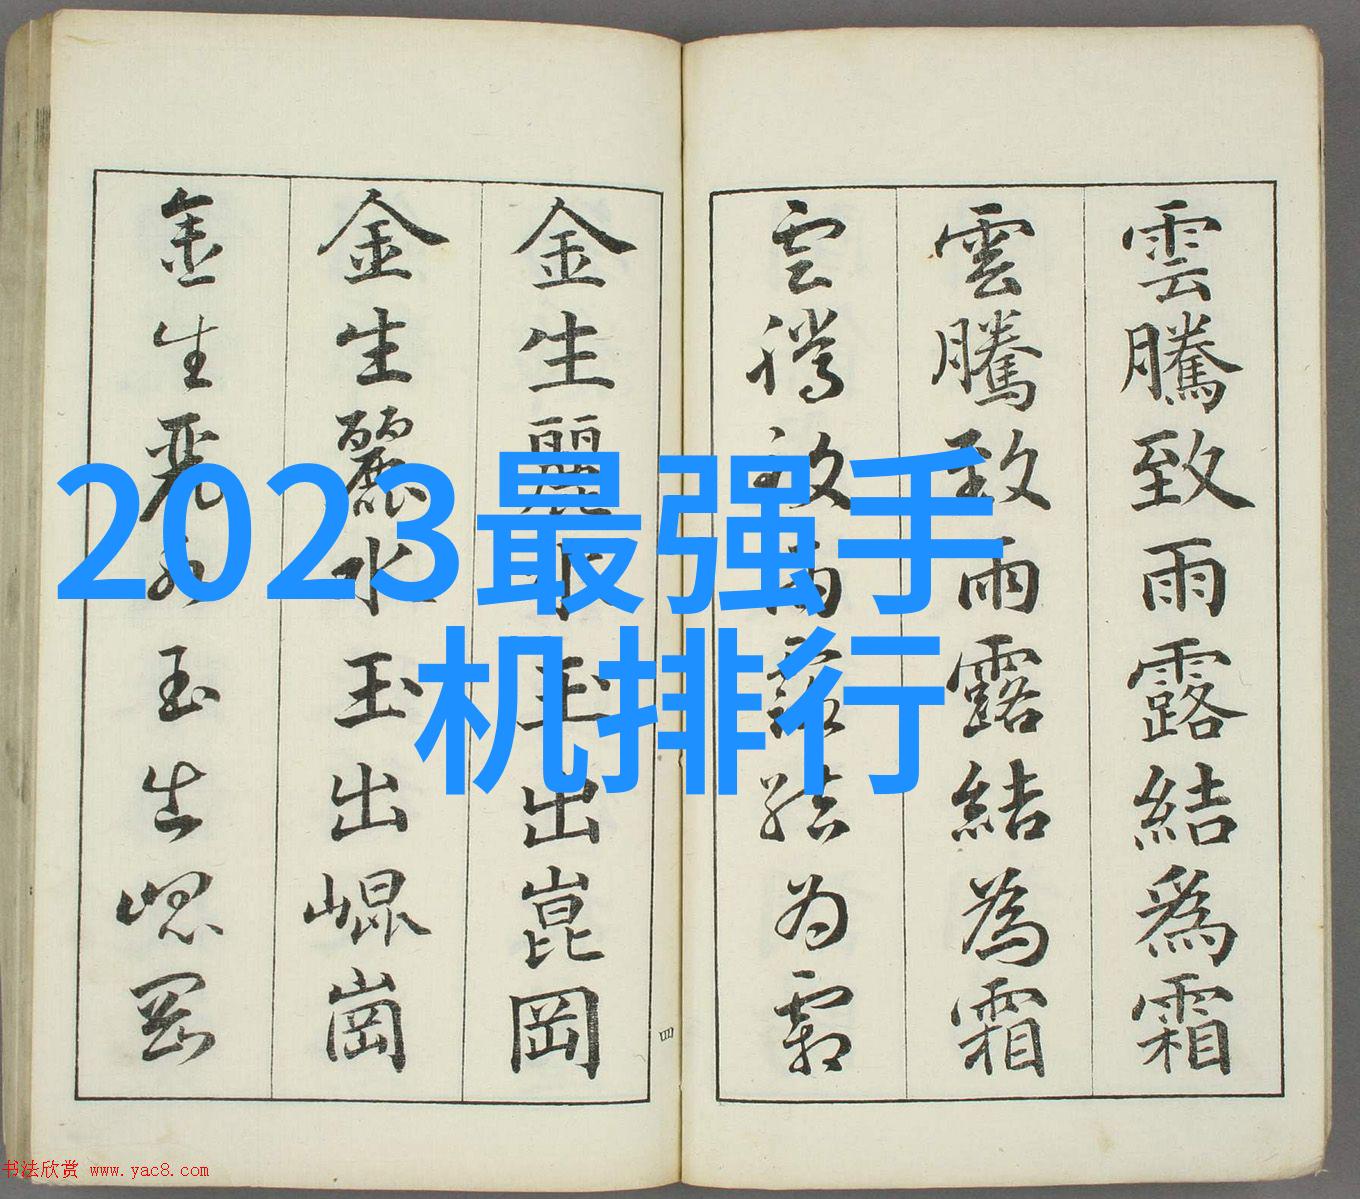 2023最强手
机排行
雲騰致雨露結爲霜
雲騰致雨露結為霜
雲騰致雨露結为霜
金生麗水玉出崑岡
金生麗水玉出崐崗
金生麗水玉出崐岡
四
书法欣赏 www.yac8.com